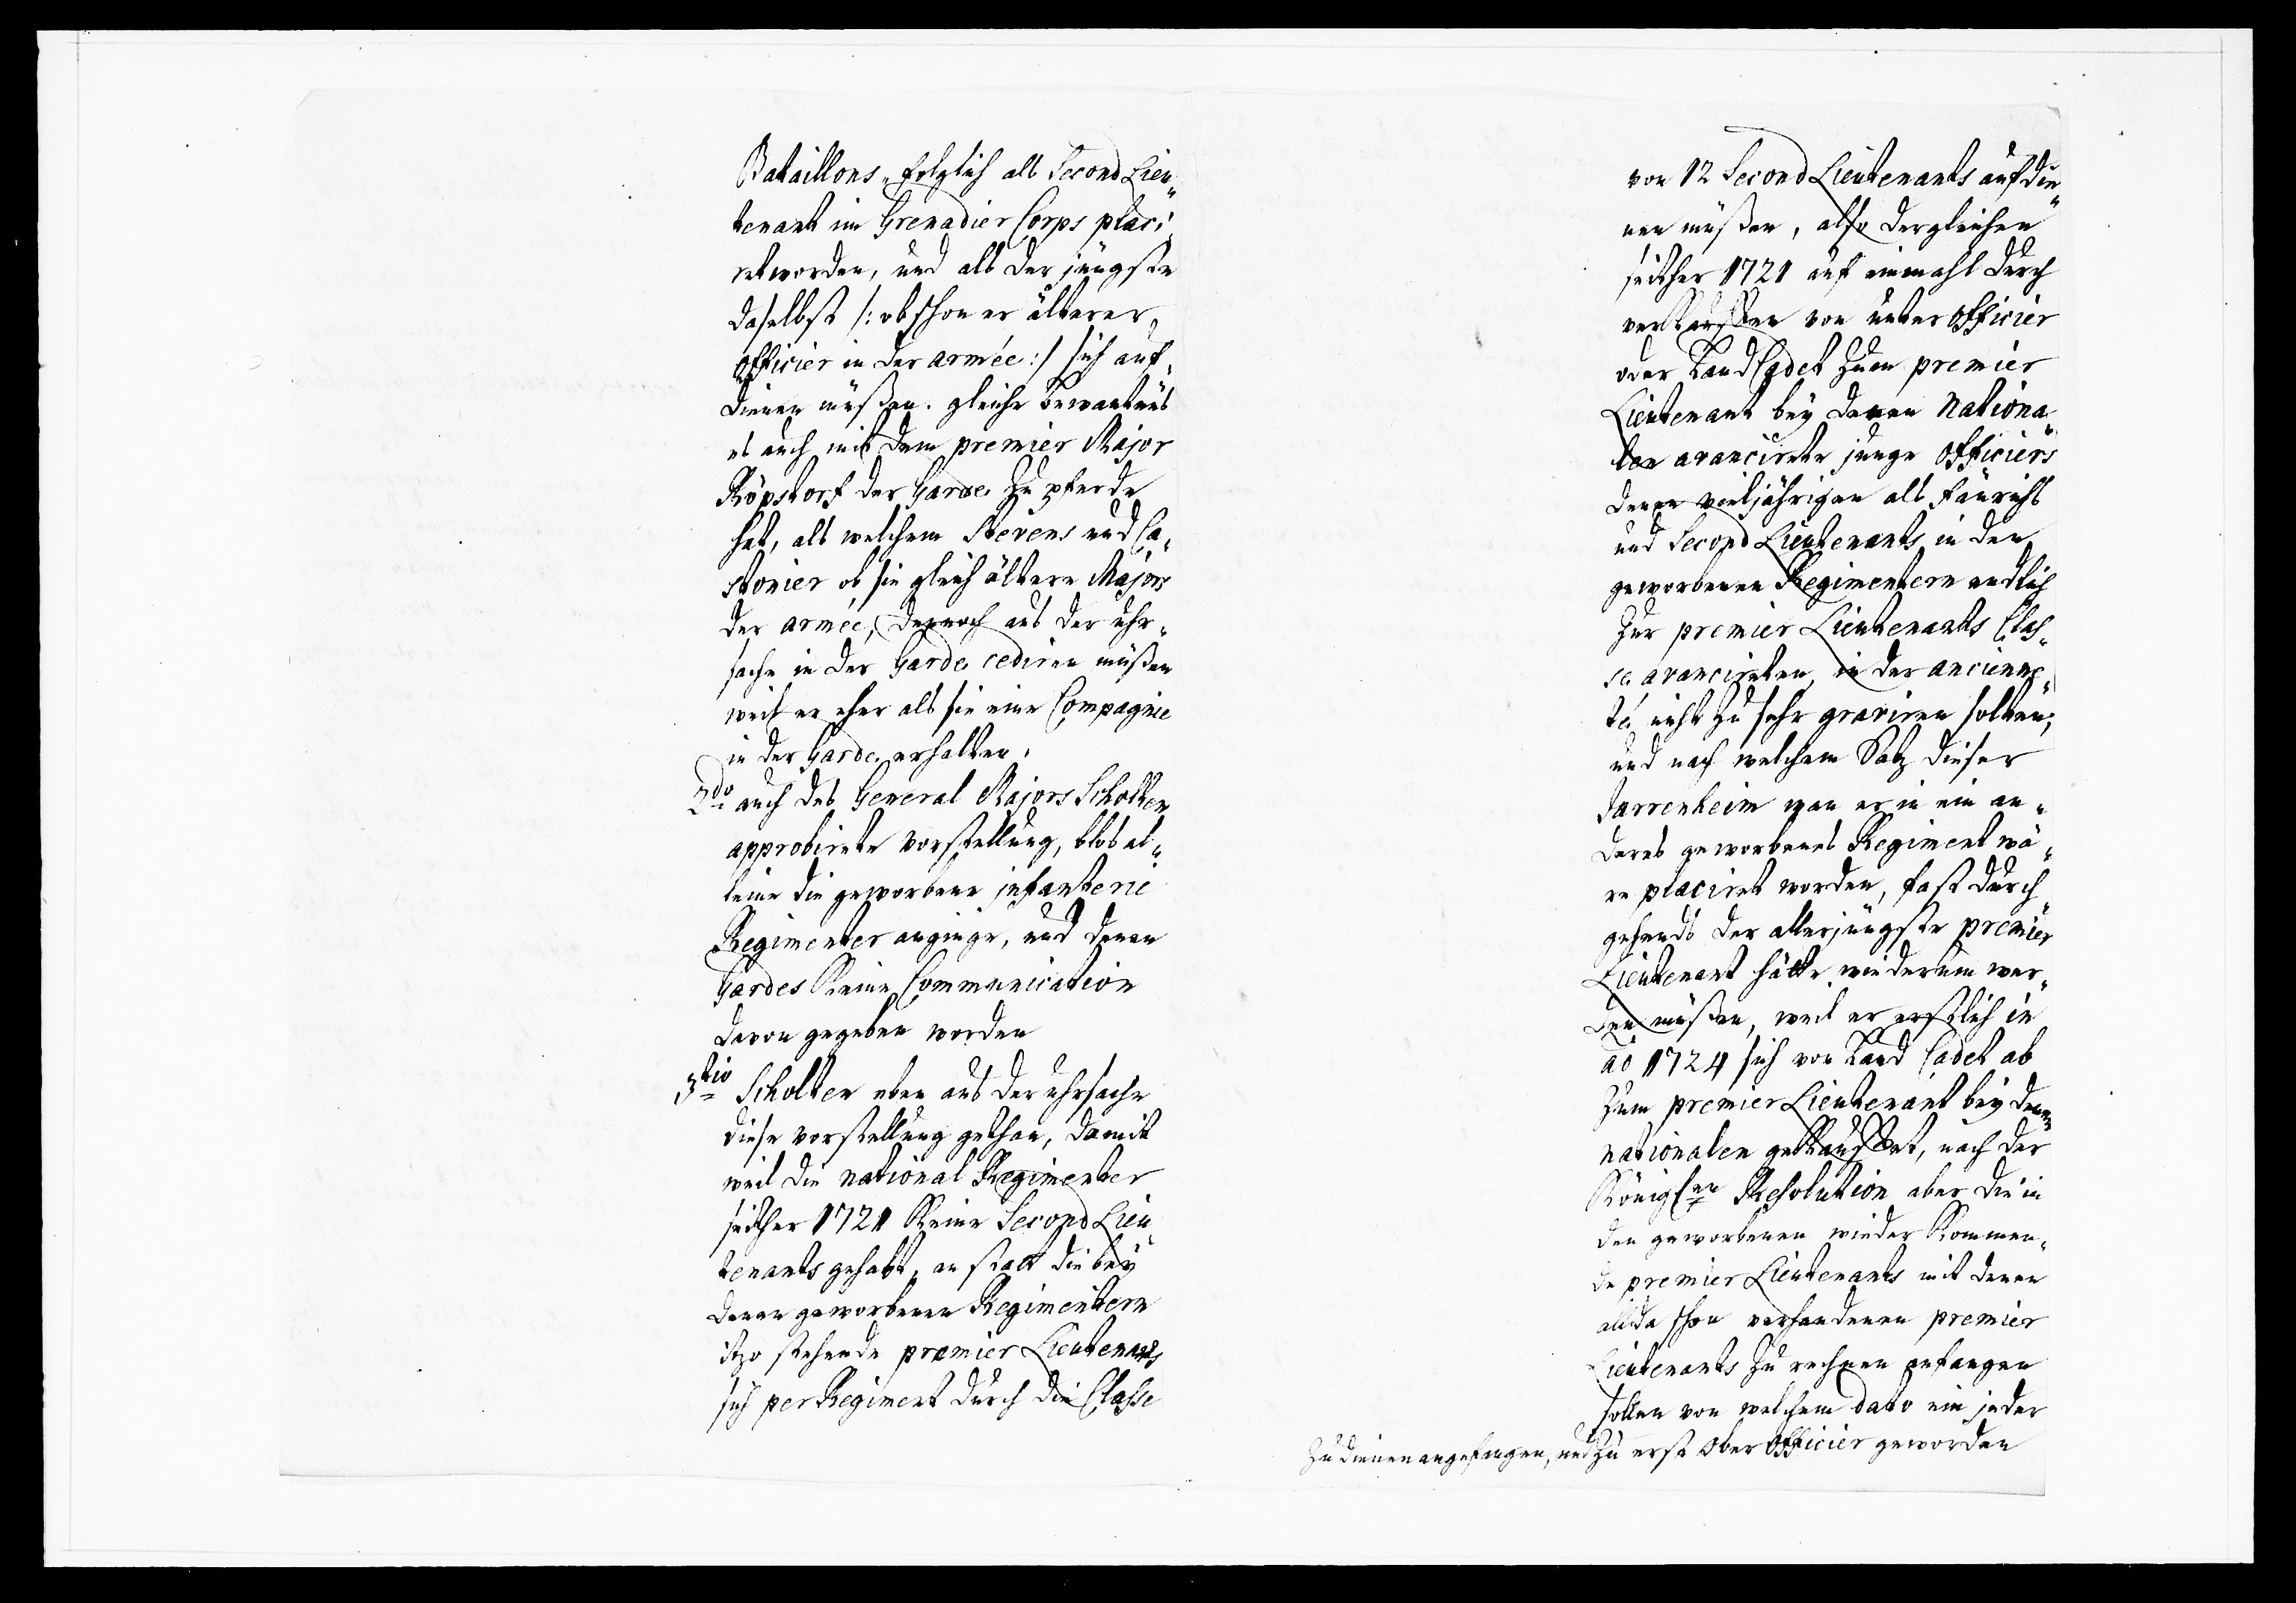 Bataillons, folglich als Second Lieu„
tenant im Grenadier Corps placi„
ret worden, und als der jüngste
daselbst /: obschon er älterer
Officier in der armée :/ sich auf„
dienen müßen. gleiche bewantnüs
es auch mit dem premier Major
Röpstorf der Garde zu pferde
hat, als welchem Stevens und Ca„
stonier ob sie gleich ältere Majors
der armée, dennoch aus der uhr„
sache in der Garde cediren müßen
weil er eher als sie eine Compagnie
in der Garde erhalten.
2do auch des General Majors Scholten
approbirete vorstellung, blos al„
leine die geworbene infanterie
Regimenter anginge, und denen
Gardes Keine Communication
davon gegeben worden
3tio Scholten eben aus der uhrsache
diese vorstellung gethan, damit
weil die national Regimenter
seither 1721 Keine Second Lieu„
tenants gehabt, an statt die bey
denen geworbenen Regimentern
itzo stehende premier Lieutenants
sich per Regiment durch die Classe
von 12 Second Lieutenants aufdie„
nen müßen, also dergleichen
seither 1721 auf einmahl durch
verKauffen von unter Officier
oder Land Cadet zum premier
Lieutenant bey denen Nationa„
len avancirete junge Officiers
denen vieljährigen als fänrichs
und Second Lieutenants in den
geworbenen Regimentern endlich
zur premier Lieutenants Clas„
se avancireten, in der ancienne„
té, nicht zu sehr graviren solten;
und nach welchem Satz dieser
Tarrenheim wan er in ein an„
deres geworbenes Regiment wä„
re placiret worden, fast durch„
gehends der allerjüngste premier
Lieutenant hätte wiederum wer„
den müßen, weil er erstlich in
ao 1724 sich von Land Cadet ab
zum premier Lieutenant bey denen
nationalen geKauffet, nach der
Königlen Resolution aber die in
den geworbenen wieder Kommen„
de premier Lieutenants mit denen
alda schon verhandenen premier
Lieutenants zu rechnen anfangen
sollen von welchem dato ein jeder
zu dienen angefangen, und zu erst Ober Officier geworden